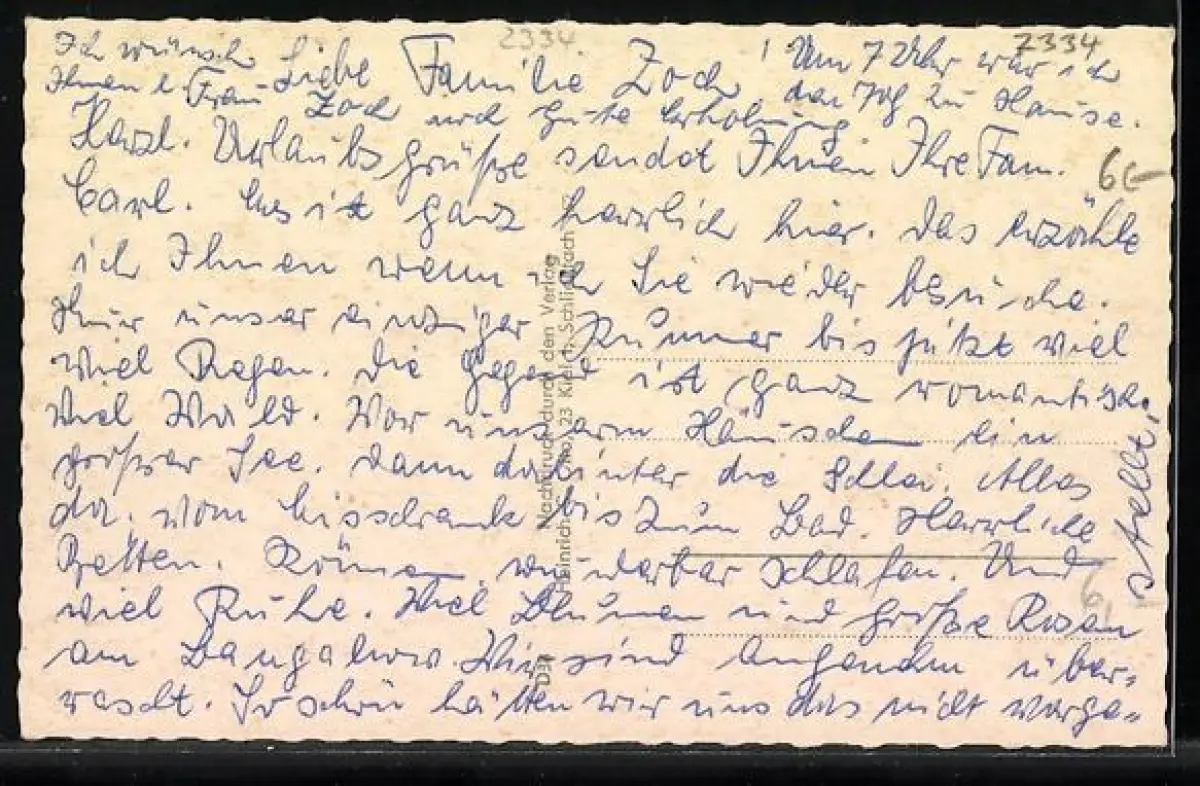 2334.
2334
Ich wünsche
Ihnen l. Frau
Zoch noch gute Erholung
! Um 7 Uhr war ich
zu Hause.
Liebe Familie Zoch
Herzl. Urlaubsgrüße sendet Ihnen Ihre Fam.
Carl. Es ist ganz herrlich hier. Das erzähle
ich Ihnen wenn ich Sie wieder besuche.
Nur unser einziger Kummer bis jetzt viel
viel Regen. Die Gegend ist ganz romantisch.
Viel Wald. Vor unserm Häuschen ein
großer See. Dann dahinter die Schlei. Alles
da. vom Eisschrank bis zum Bad. Herrliche
Betten. Können wunderbar schlafen. Und
viel Ruhe. Viel Blumen und große Rosen
am Bungalow. Wir sind angenehm über-
rascht. So schön hätten wir uns das nicht vorge-
stellt.
6,-
Nachdruck durch den Verlag
Heinrich 23 Kiel